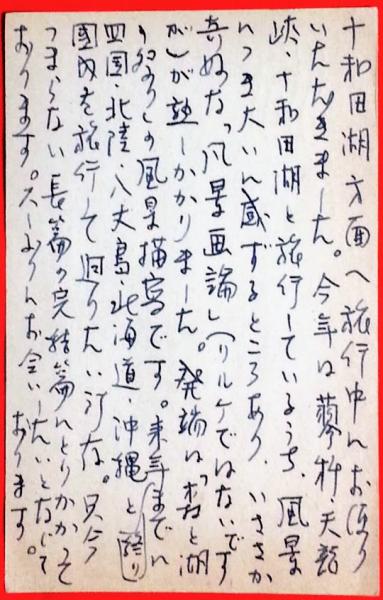 十和田湖方面へ旅行中にお便り
いただきました。今年は蓼科・天龍
峡・十和田湖と旅行しているうち、風景
につき大いに感ずるところあり、いささか
奇妙な「風景画論」(リルケではないです
が)が熟しかかりました。発端は「村と湖
の祭り」の風景描写です。来年までに
四国・北陸・八丈島・北海道・沖縄と
国内を旅行して廻りたい汀な。只今
つまらない長篇の完結篇にとりかかって
おります。久しぶりにお会いしたいとねじて
おります。